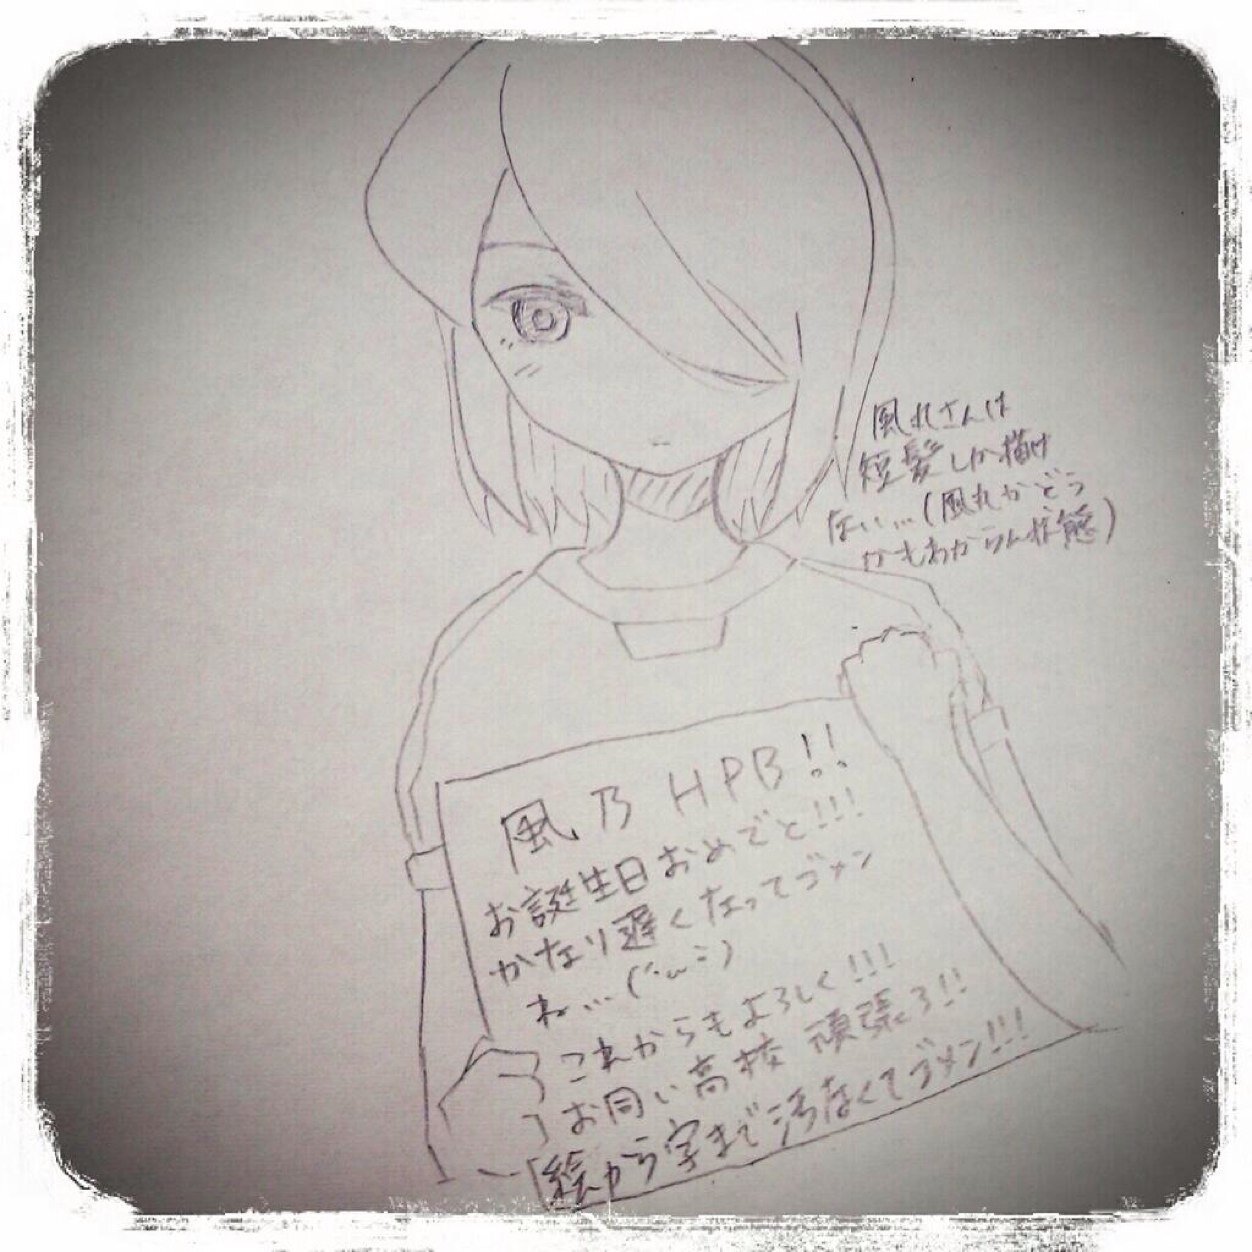 風丸さんは
短髪しか描け
ない…(風丸かどう
かもわからん状態)
風乃 HPB!!
お誕生日おめでと!!!
かなり遅くなってゴメン
ね…(´･ω･`)
これからもよろしく!!!
お同い高校頑張ろ!!
絵から字まで汚なくてゴメン!!!